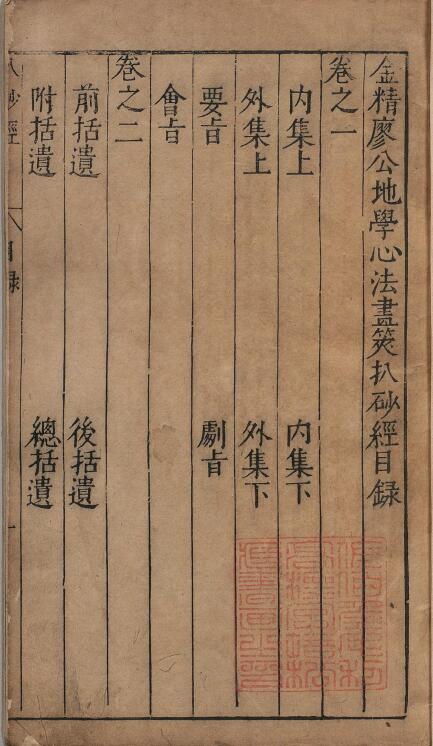 金精廖公地學心法畫筴扒砂經目録
卷之一
内集上 内集下
外集上 外集下
要旨 劇旨
會旨
卷之二
前括遺 後括遺
附括遺 總括遺
扒砂經 目録 一